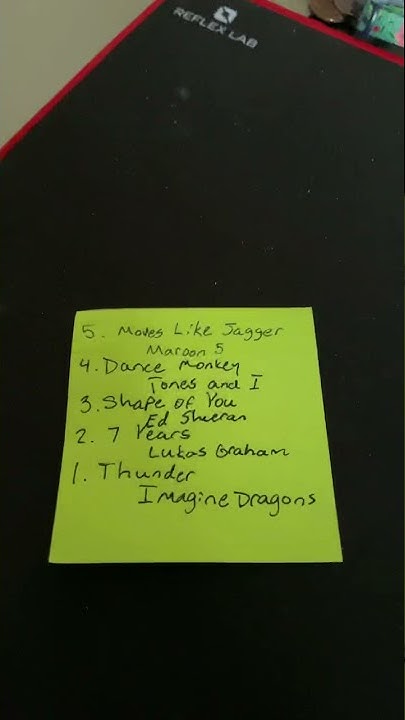 REFLEX LAB
5. Moves Like Jagger
Maroon 5
4. Dance Monkey
Tones and I
3. Shape of You
Ed Sheeran
2. 7 Years
Lukas Graham
1. Thunder
Imagine Dragons